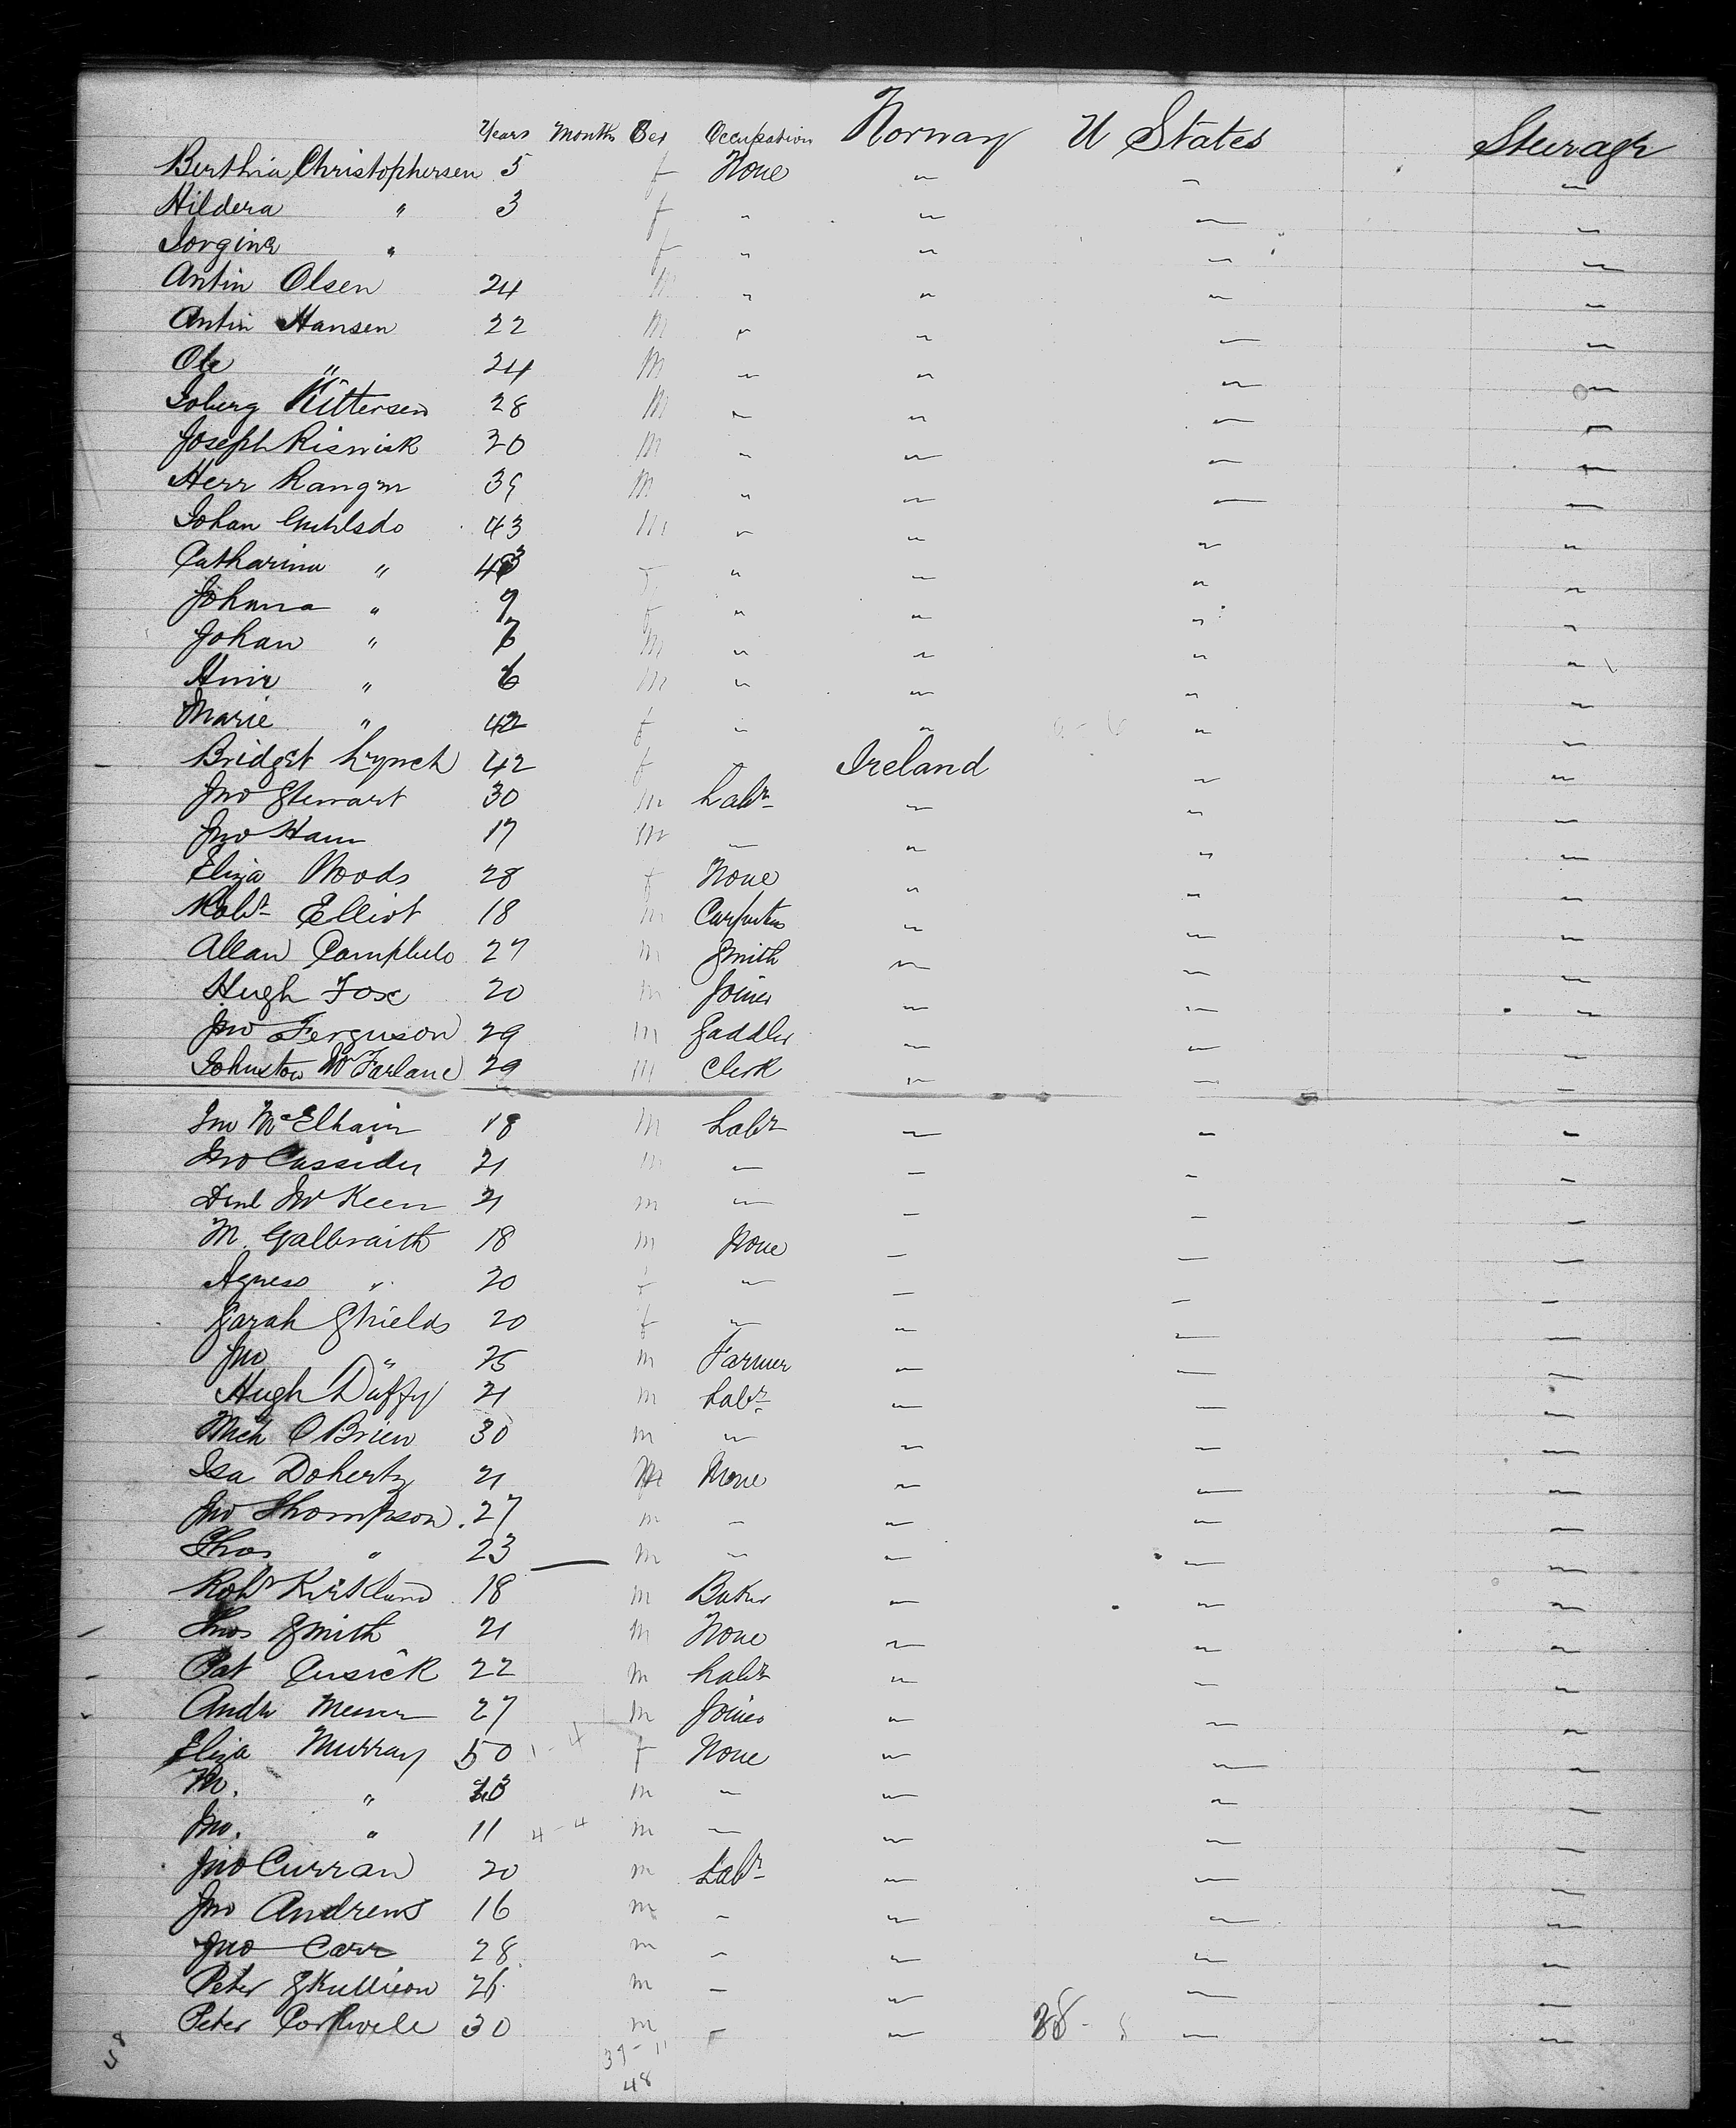 Years Months Sex Occupation Norway U States Steerage
Berthia Christophersen 5 f None " " "
Hildera " 3 f " " " "
Jorgina " f " " " "
Antin Olsen 24 m " " " "
Antin Hansen 22 m " " " "
Ole " 24 m " " " "
Soberg Kittersen 28 m " " " "
Joseph Riswick 20 m " " " "
Herr 39 m " " " "
Johan 43 m " " " "
Catharina " 43 f " " " "
Johana " 9 f " " " "
Johan " 7 m " " " "
" 6 m " " " "
Marie " 42 f " " " "
Bridget Lynch 42 f " Ireland " "
Jno Stewart 30 m Labr " " "
Jno Ham 17 m " " " "
Eliza Woods 28 f None " " "
Robt Elliot 18 m Carpenter " " "
Allan Campbell 27 m Smith " " "
Hugh Fox 20 m Joiner " " "
Jno Ferguson 29 m Saddler " " "
Johnston McFarlane 29 m Clerk " " "
Jno McElhair 18 m Labr " " "
Jno Cassidy 21 m " " " "
Danl McKeen 21 m " " " "
M. Galbraith 18 m None " " "
Agness " 20 f " " " "
Sarah Shields 20 f " " " "
Jno " 25 m Farmer " " "
Hugh Duffy 21 m Labr " " "
Mich OBrien 30 m " " " "
Isa Doherty 21 None " " "
Jno Thompson 27 m " " " "
Thos " 23 m " " " "
Robt Kirkland 18 m Baker " " "
Thos Smith 21 m None " " "
Pat Cusick 22 m Labr " " "
Andw 27 m Joiner " " "
Eliza Murray 50 f None " " "
M. " 13 m " " " "
Jno. " 11 4-4 m " " " "
Jno Curran 20 m Labr " " "
Jno Andrews 16 m " " " "
Jno Carr 28 m " " " "
Peter Skullion 26 m " " " "
Peter 30 m " " " "
37-11
48